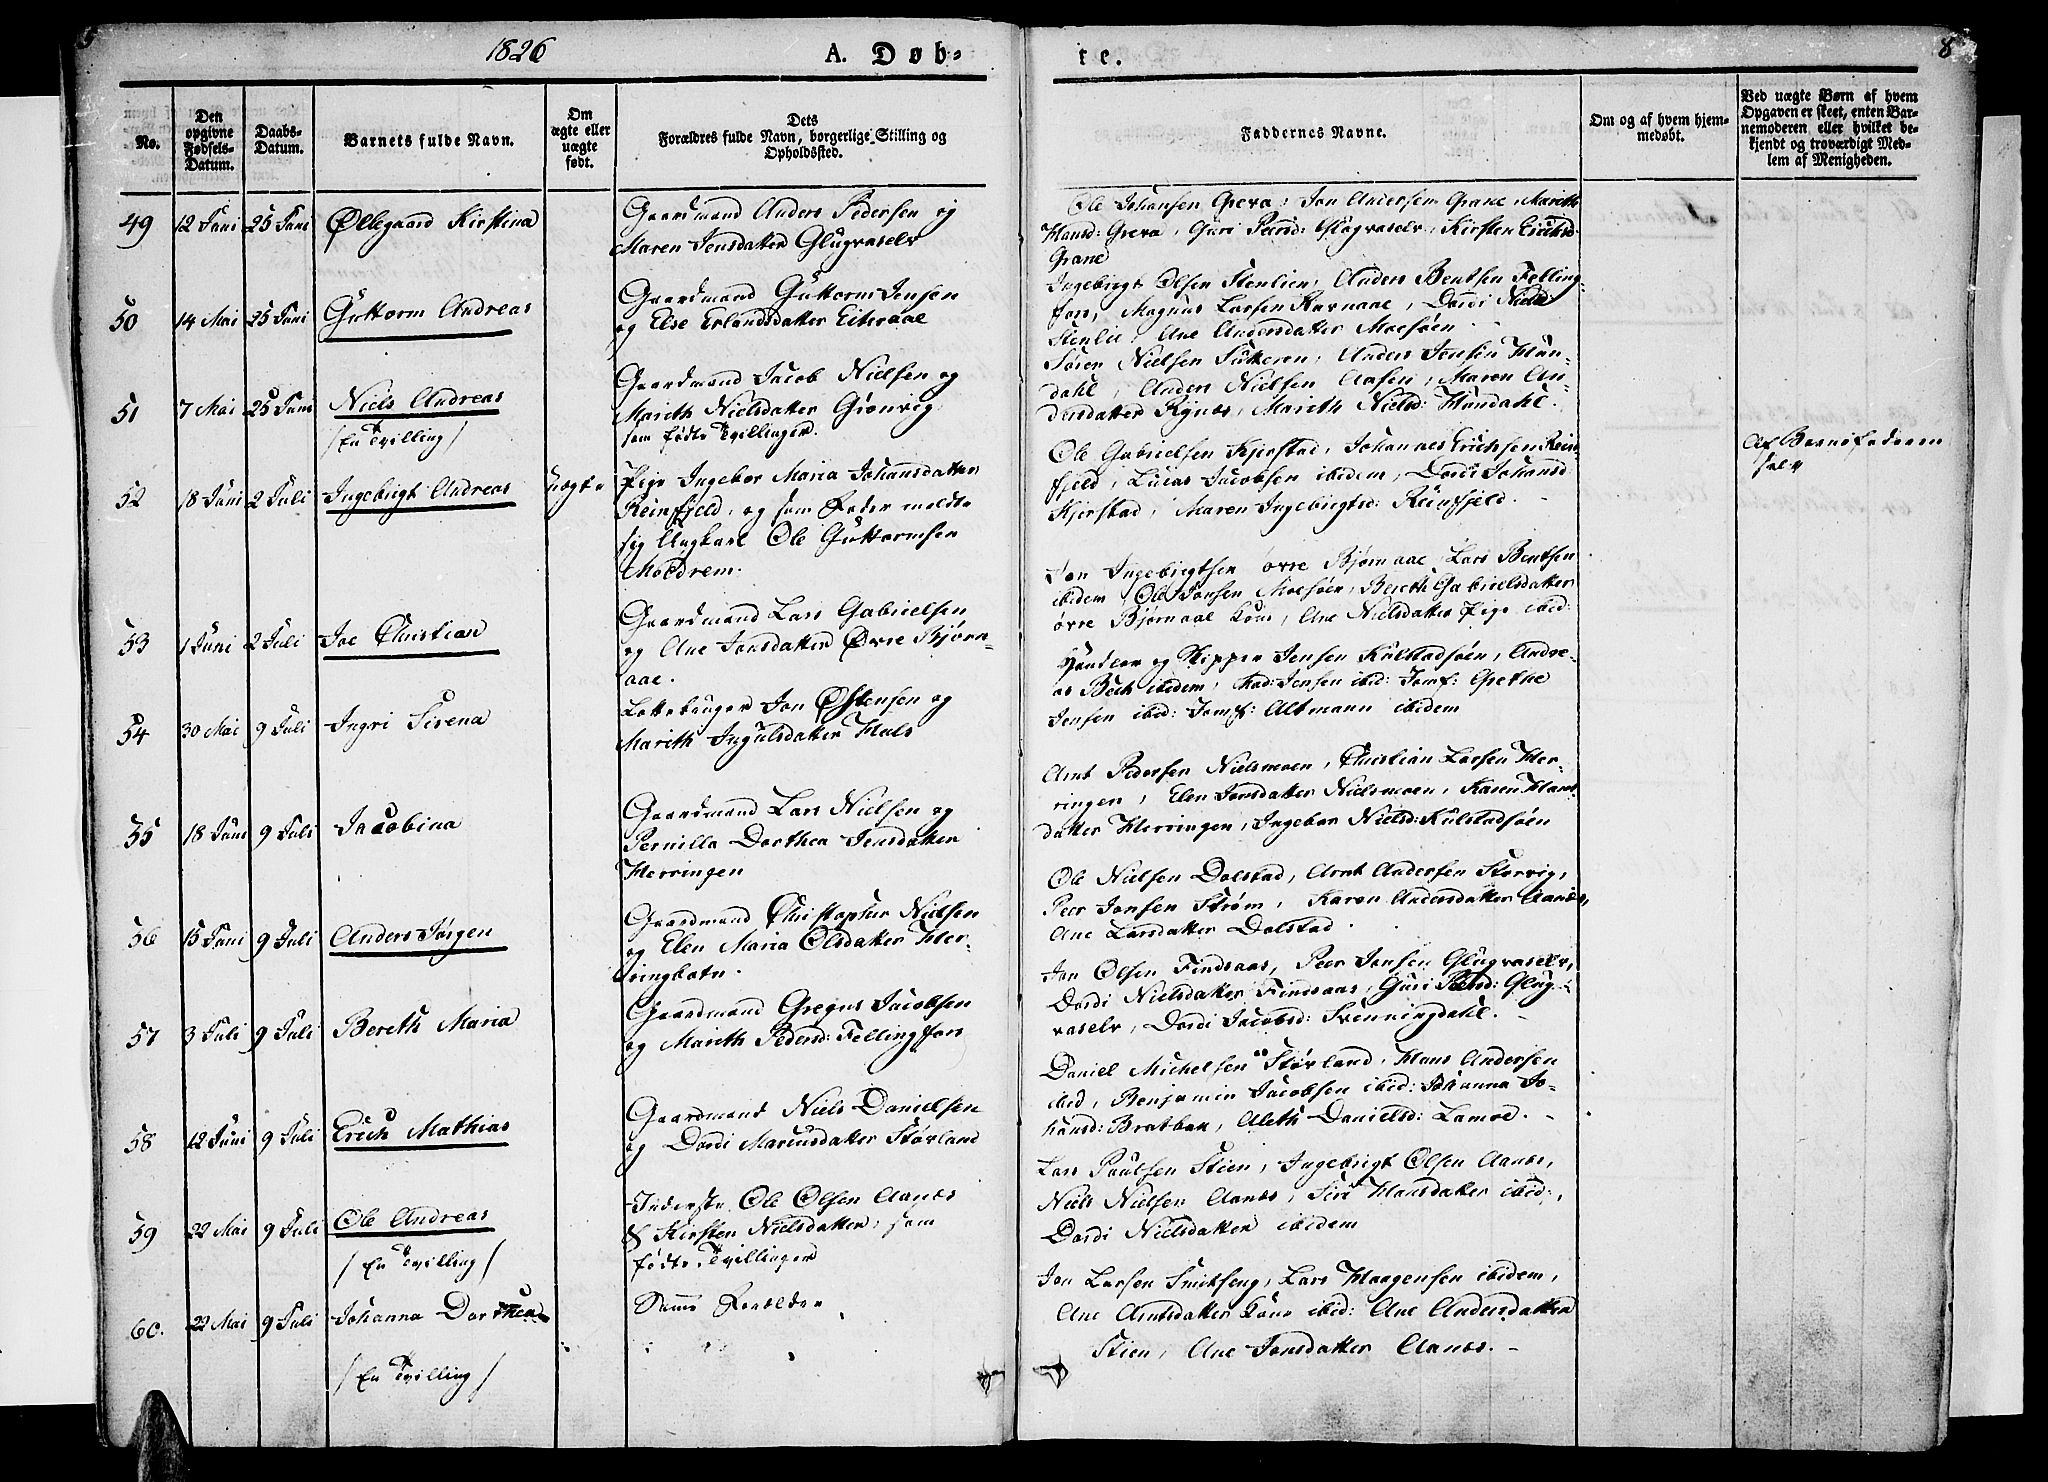 1826
A. Døb-
te.
8
No.
Den opgivne Fødsels-Datum.
Daabs-Datum.
Barnets fulde Navn.
Om ægte eller uægte født.
Dets
Forældres fulde Navn, borgerlige Stilling og
Opholdssted.
Faddernes Navne.
Om og af hvem hjem-
medøbt.
Ved uægte Børn af hvem
Opgaven er skeet, enten Bar-
nemoderen eller hvilket be-
kjendt og troværdigt Med-
lem af Menigheden.
49 12 Juni 25 Juni Øllegaard Kirstina
Gaardmand Anders Pedersen og
Maren Jensdatter Glugvaselv
Ole Johansen Greva, Jon Andersen Grane, Marith
Hansd: Greva, Guri Peersd: Glugvaselv, Kirsten Erichsd:
Grane
50 14 Mai 25 Juni Guttorm Andreas
Gaardmand Guttorm Jensen
og Else Erlandsdatter Eiteraae
Ingebrigt Olsen Stenlien, Anders Bentsen Felling-
fors, Magnus Larsen Ravnaae, Dordi Nielsd:
Stenlie, Ane Andersdatter Moesøen
51 7 Mai 25 Juni Niels Andreas
/En Tvilling/
Gaardmand Jacob Nielsen og
Marith Nielsdatter Grønvig
som fødte Tvillinger.
Søren Nielsen Sutteren, Anders Jensen Hun-
dahl, Anders Nielsen Aasen, Maren An-
dersdatter Rynes, Marith Nielsd: Hundahl.
52 18 Juni 2 Juli Ingebrigt Andreas uægte
Pige Ingebor Maria Johansdatter
Reinfjeld, og som Fader meldte
sig Ungkarl Ole Guttormsen
Moldrem.
Ole Gabrielsen Kjerstad, Johannes Erichsen Rein-
fjeld, Lucas Jacobsen ibidem, Dordi Johansd
Kjerstad, Maren Ingebrigtsd: Reinfjeld.
Af Barnefaderen
selv
53 1 Juni 2 Juli Joe Christian
Gaardmand Lars Gabrielsen
og Ane Jonsdatter Øvre Bjørn-
aae.
Jon Ingebrigtsen øvre Bjørnaae, Lars Bentsen
ibidem, Ole Jonsen Moesøen, Bereth Gabrielsdatter
øvre Bjørnaae Kone, Ane Nielsdatter Pige ibid:
54 30 Mai 9 Juli Ingri Sirena
Jon Østensen og
Marith Ingulsdatter Hals
Handler og Skipper Jensen Kulstadsøen, Andre-
as Bech ibidem, Mad: Jensen ibid: Jomf: Grethe
Jensen ibid: Jomf: Altmann ibidem
55 18 Juni 9 Juli Jacobina
Gaardmand Lars Nielsen og
Pernilla Dorthea Jensdatter
Herringen
Arnt Pedersen Nielsmoen, Christian Larsen Her-
ringen, Elen Jonsdatter Nielsmoen, Karen Hans-
datter Herringen, Ingebor Nielsd: Kulstadsøen
56 15 Juni 9 Juli Anders Jørgen
Gaardmand Christopher Nielsen
og Elen Maria Olsdatter Her-
ringbotn.
Ole Nielsen Dolstad, Arnt Andersen Storvig,
Peer Jonsen Strøm, Karen Andersdatter Aanes,
Ane Larsdatter Dolstad.
57 3 Juli 9 Juli Bereth Maria
Gaardmand Gregus Jacobsen
og Marith Pedersd: Fellingfors
Jon Olsen Findsaas, Peer Jonsen Glugvaselv,
Dordi Nielsdatter Findsaas, Guri Peersd: Glug-
vaselv, Dordi Jacobsd: Svenningdahl.
58 12 Juni 9 Juli Erich Mathias
Gaardmand Niels Danielsen
og Dordi Marcusdatter Størland
Daniel Michelsen Størland, Hans Andersen
ibid, Benjamin Jacobsen ibid: Johanna Jo-
hansd: Bratbak, Aleth Danielsd: Lamoe.
59 22 Mai 9 Juli Ole Andreas
/En Tvilling/
Inderste Ole Olsen Aanes
& Kirsten Nielsdatter, som
fødte Tvillinger
Lars Paulsen Stien, Ingebrigt Olsen Aanes,
Niels Nielsen Aanes, Siri Hansdatter ibid:,
Dordi Nielsdatter ibidem
60. 22 Mai 9 Juli Johanna Dorthea
/En Tvilling/
Samme Forældre
Jon Larsen Smedseng, Lars Haagensen ibidem,
Ane Arntsdatter Kone ibid: Ane Andersdatter
Stien, Ane Jonsdatter Aanes.